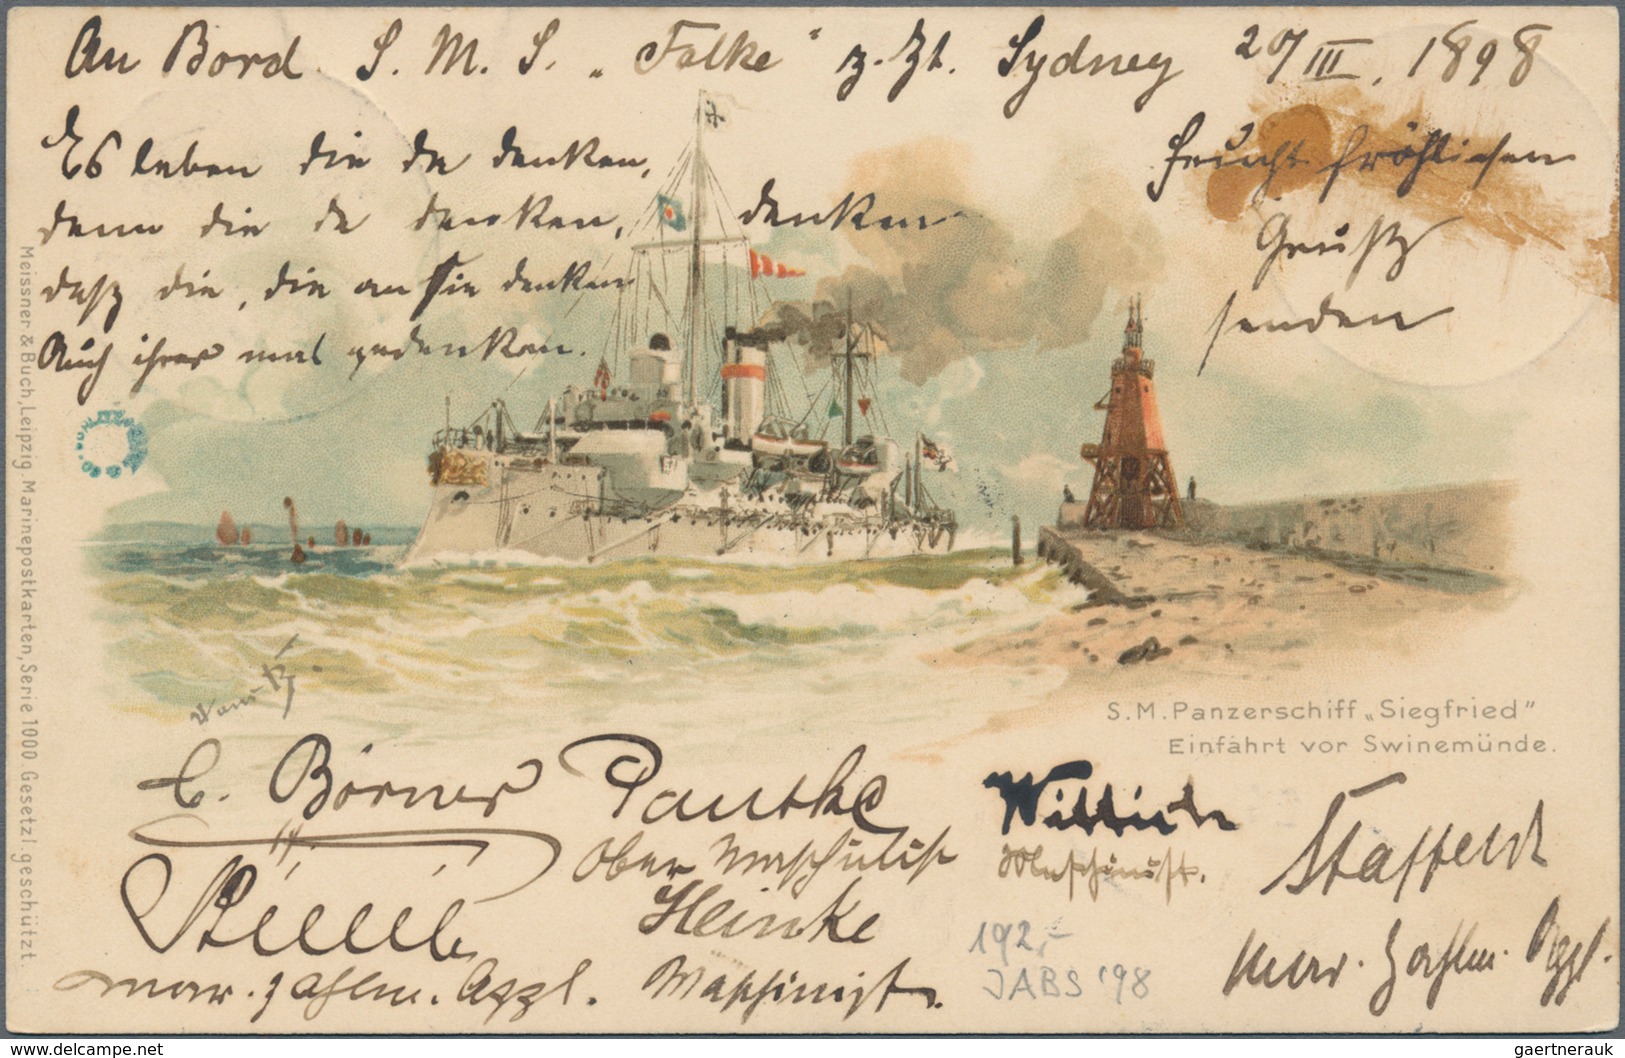 An Bord S. M. S. „Falke“ z. Zt. Sydney 20/III. 1898
Es leben die da denken,
denn die da denken, denken
daß die, die an sie denken
Auch ihrer mal gedenken.
Feucht fröhlichen
Grüße
senden
Meissner & Buch, Leipzig. Marinepostkarten, Serie 1000 Gesetzl. geschützt
S.M. Panzerschiff „Siegfried"
Einfahrt vor Swinemünde.
C. Börner
Pantke
Ober Maschinist
Wittich
Maschinist.
Staffeldt
Mar. Zahlm. Appl.
mar. Zahlm. Appl.
Heinke
Maschinist.
192,-
JABS '98
www.delcampe.net
gaertnerauk